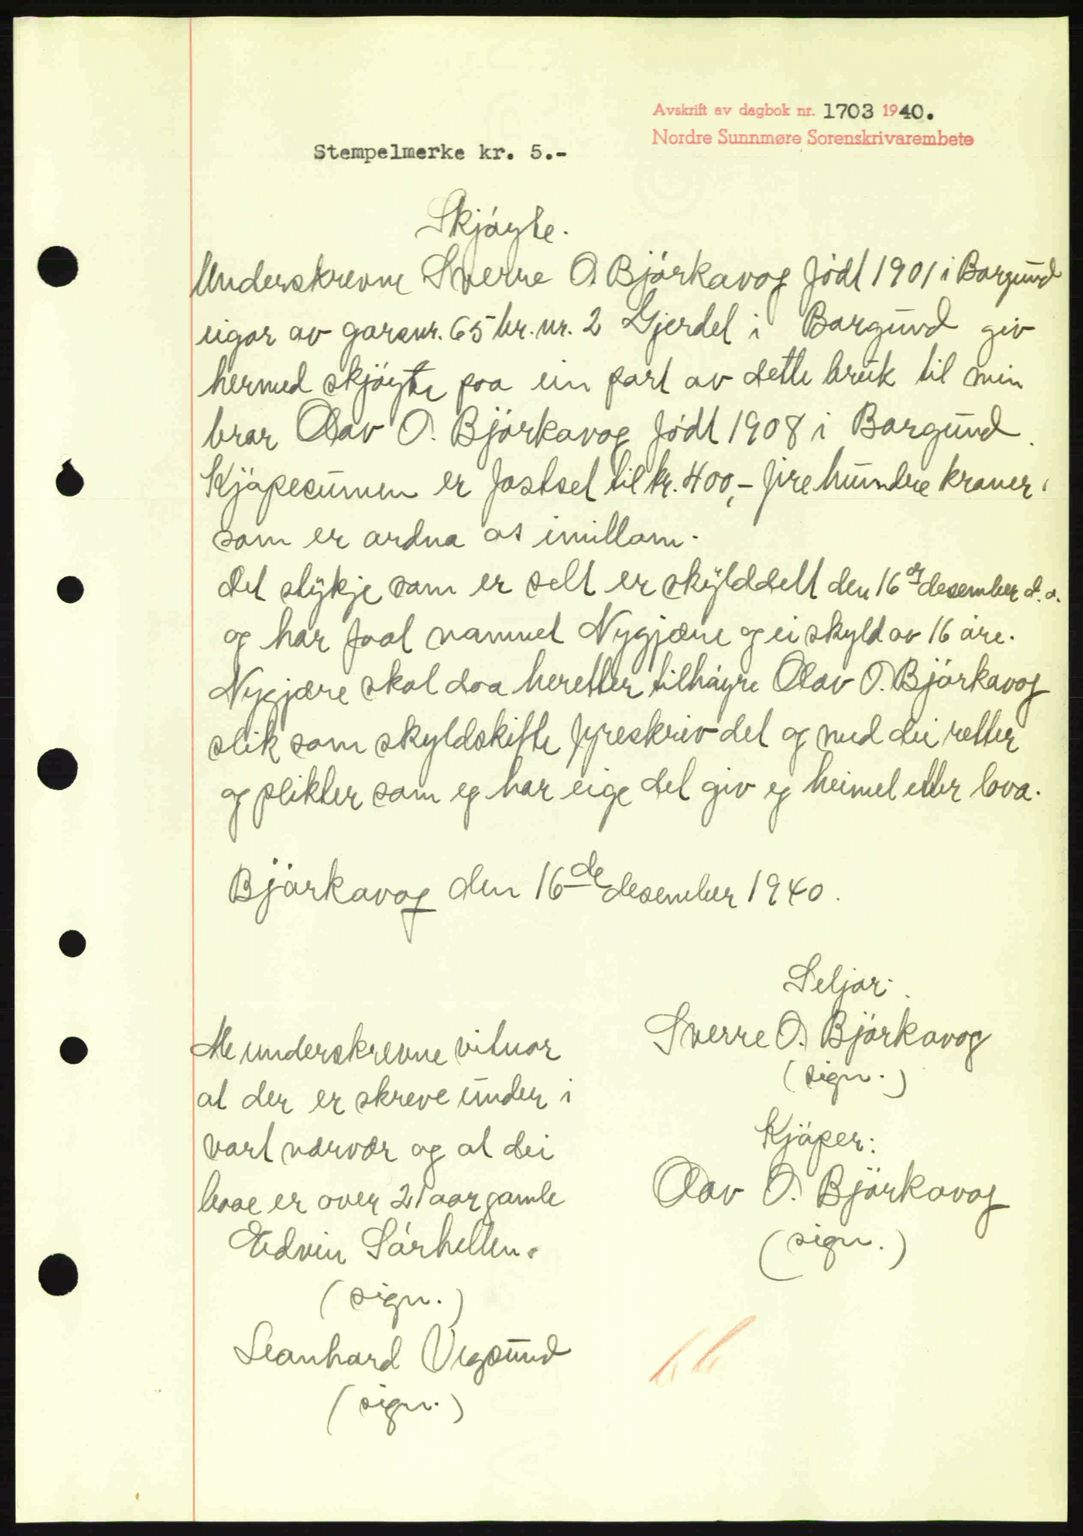 Avskrift av dagbok nr. 1703 1940.
Nordre Sunnmøre Sorenskrivarembete
Stempelmerke kr. 5.-
Skjøyte.
Underskrevne Sverre O. Bjørkavog født 1901 i Borgund
eigar av garsnr. 65 br. nr. 2 Gjerdet i Borgund giv
hermed skjøyte paa ein part av dette bruk til min
bror Olav O. Bjørkavog født 1908 i Borgund.
Kjøpesumen er fastset til kr. 400,- fire hundre kroner,
som er ordna os imillom.
Det stykje som er selt er skylddelt den 16de desember d.a.
og har faat namnet Nygjære og ei skyld av 16 øre.
Nygjære skal daa heretter tilhøyre Olav O. Bjørkavog
slik som skyldskifte fyreskriv det og med dei retter
og plikter som eg har eige det giv eg heimel etter lova.
Bjørkavog den 16de desember 1940.
Seljar:
Sverre O. Bjørkavog
(sign.)
Kjøper:
Olav O. Bjørkavog
(sign.)
Me underskrevne vitnar
at der er skreve under i
vart nærvær og at dei
baae er over 21 aar gamle
Edvin Sørhellen.
(sign.)
Leonhard Vegsund
(sign.)